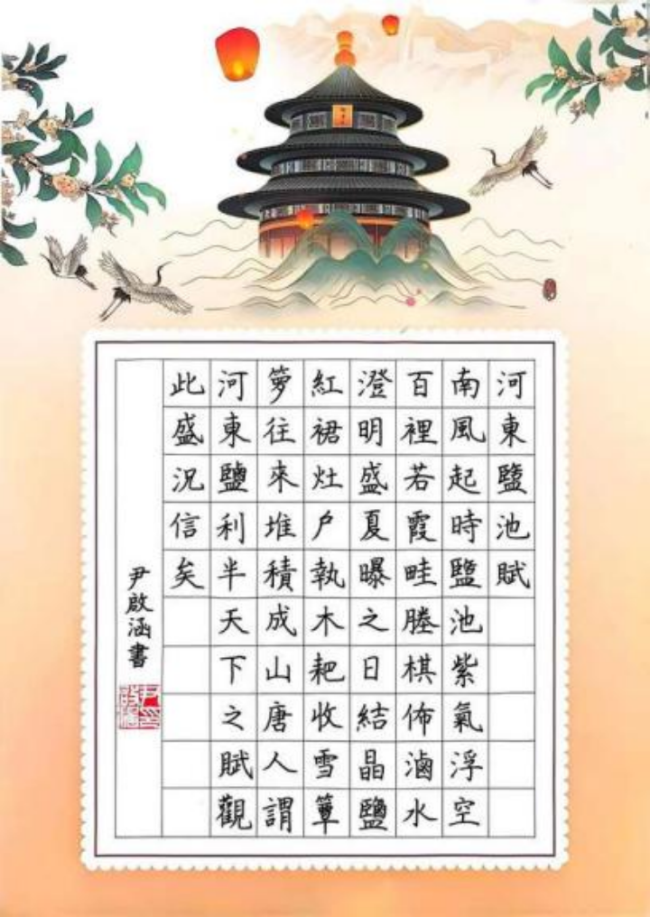 河東鹽池賦
南風起時鹽池紫氣浮空
百裡若霞畦塍棋佈滷水
澄明盛夏曝之日結晶鹽
紅裙灶户執木耙收雪簟
箩往來堆積成山唐人謂
河東鹽利半天下之賦觀
此盛況信矣
尹啟涵書